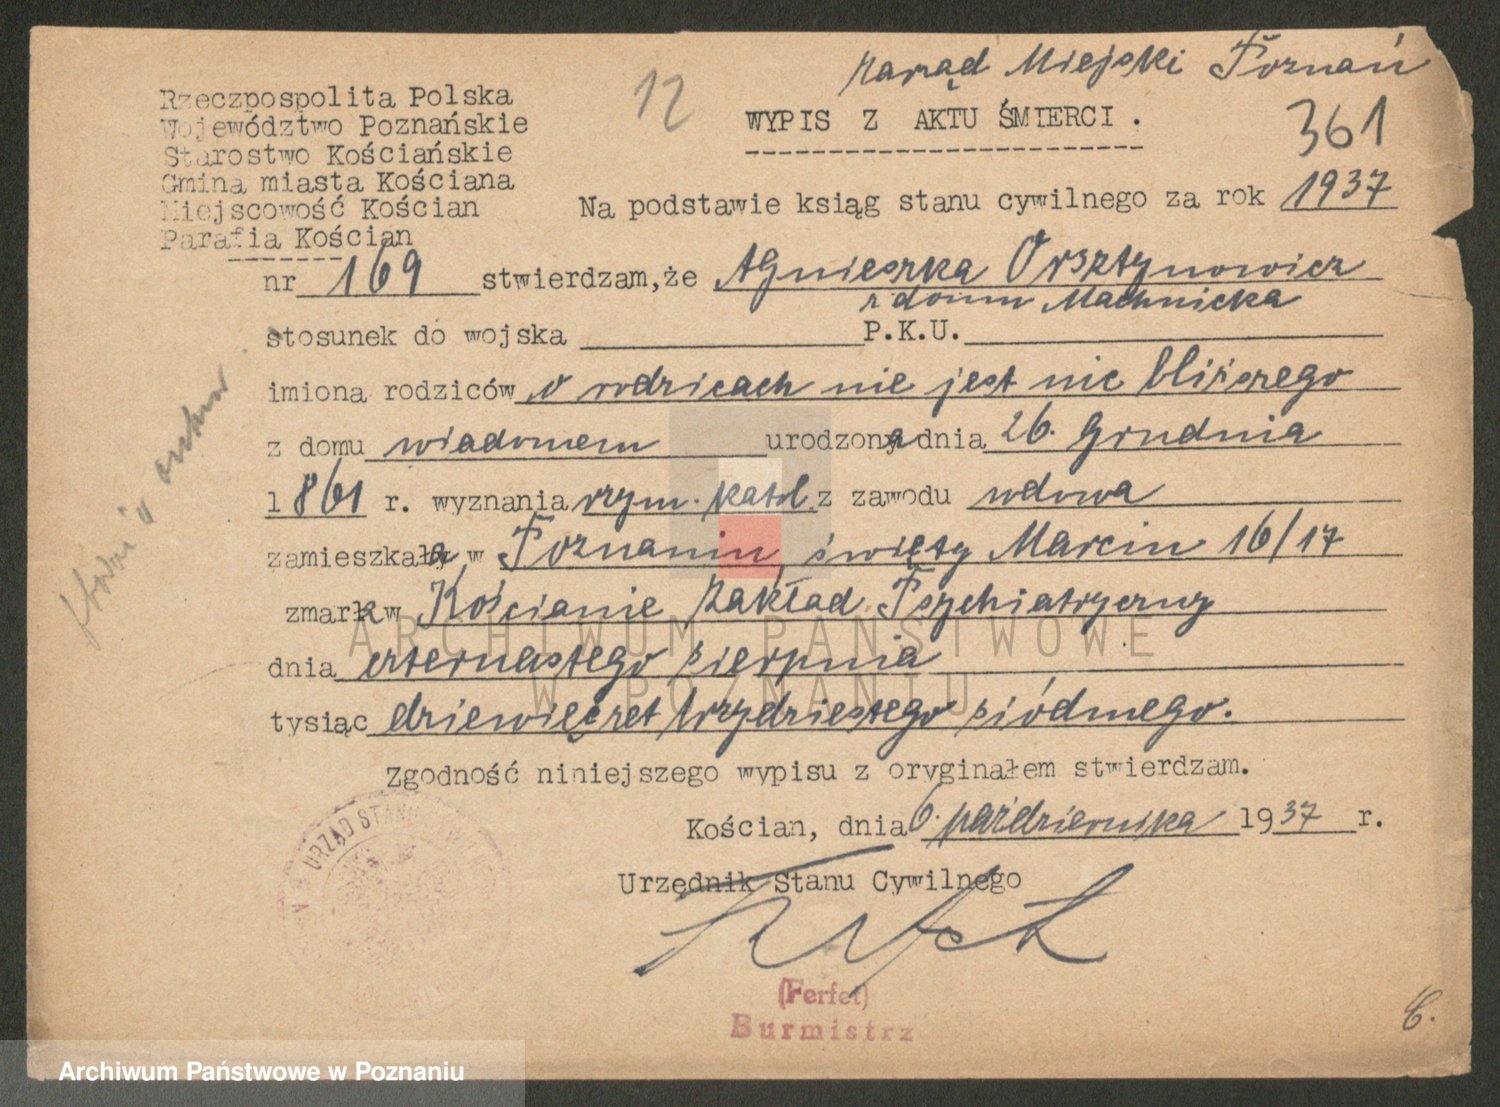 Zarząd Miejski Poznań
12
WYPIS Z AKTU ŚMIERCI .
361
Rzeczpospolita Polska
Województwo Poznańskie
Starostwo Kościańskie
Gmina miasta Kościana
Miejscowość Kościan
Parafia Kościan
Na podstawie ksiąg stanu cywilnego za rok 1937
nr 169 stwierdzam, że Agnieszka Orsztynowicz
z domu Machnicka
stosunek do wojska P.K.U.
imiona rodziców o rodzicach nie jest nic bliższego
z domu wiadomem urodzona dnia 26. Grudnia
1861 r. wyznania rzym. katol. z zawodu wdowa
zamieszkała w Poznaniu, święty Marcin 16/17
zmarła w Kościanie Zakład Psychiatryczny
dnia czternastego sierpnia
tysiąc dziewięćset trzydziestego siódmego.
Zgodność niniejszego wypisu z oryginałem stwierdzam.
Kościan, dnia 6. października 1937 r.
Urzędnik Stanu Cywilnego
(Ferfet)
Burmistrz
URZĄD STANU
ARCHIWUM PAŃSTWOWE
W POZNANIU
Archiwum Państwowe w Poznaniu